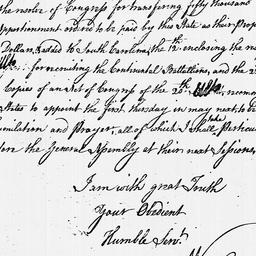 the resolve of Congress for transfering fifty thousand
apportionment ordered to be paid by this State as their Propor
Dollars, added to South Carolina; the 12th enclosing the re
for recruiting the Continental Battallions, and the 2
Copies of an Act of Congress of the 25th recom
States to appoint the first thursday in may next to be
umiliation and Prayer; all of which I shall take Particu
fore the General Assembly at their next Sessions
I am with great Truth
Your Obedient
Humble Servt